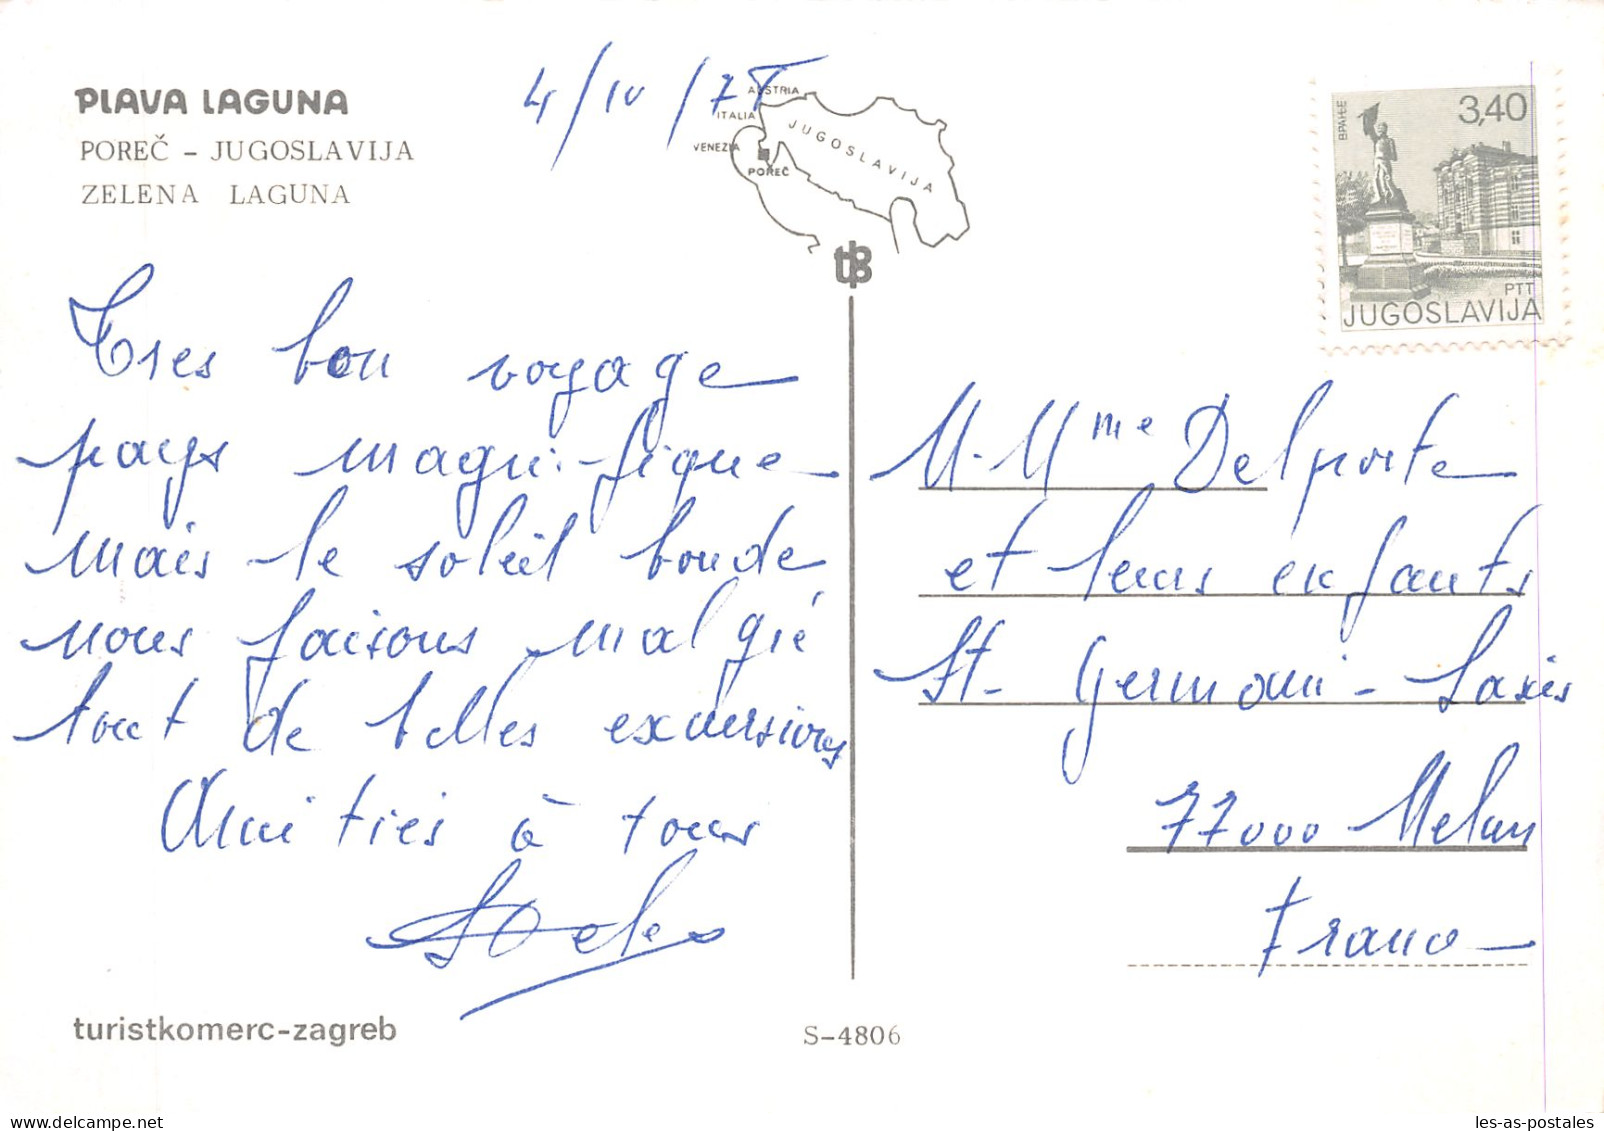 PLAVA LAGUNA
POREČ - JUGOSLAVIJA
ZELENA LAGUNA
4/IV/7
AUSTRIA
ITALIA
VENEZIA
POREČ
JUGOSLAVIJA
Tres bon voyage
pays magnifique
mais le soleil boude
nous faisons malgré
tout de belles excursions
Amitiés à tous
turistkomerc-zagreb
S-4806
ВРАЊЕ
3,40
PTT
JUGOSLAVIJA
M. Mme Delporte
et leurs enfants
St Germain - Laxis
77000 Melun
France
les-as-postales